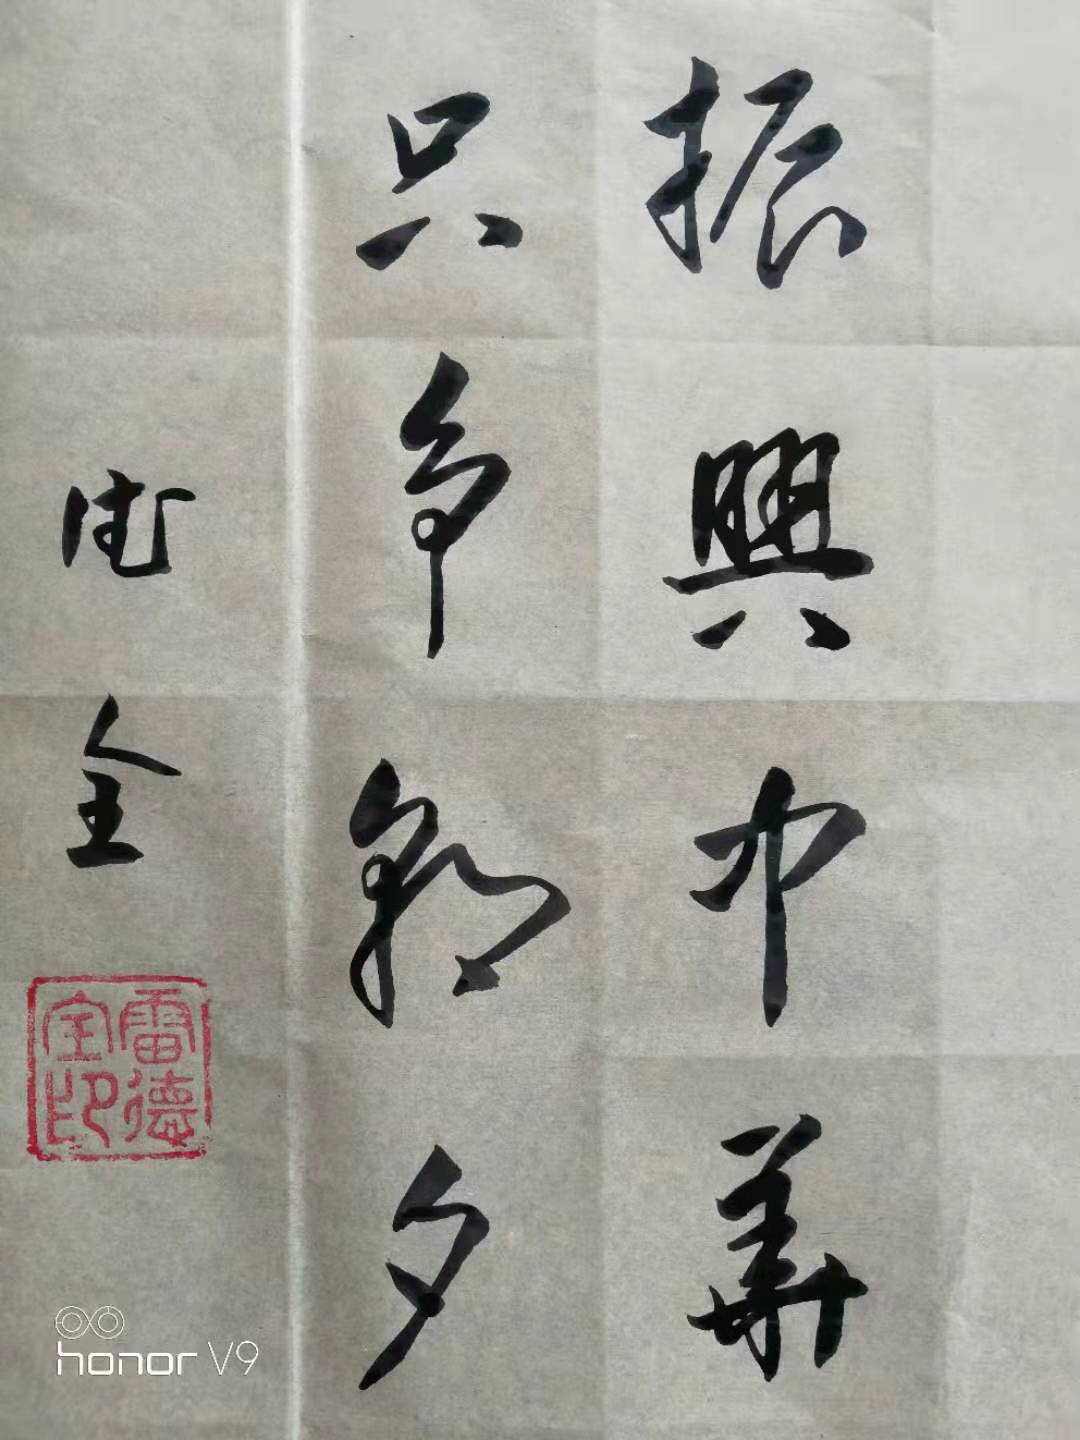 振興中華
只争朝夕
德全
雷德全印
honor V9